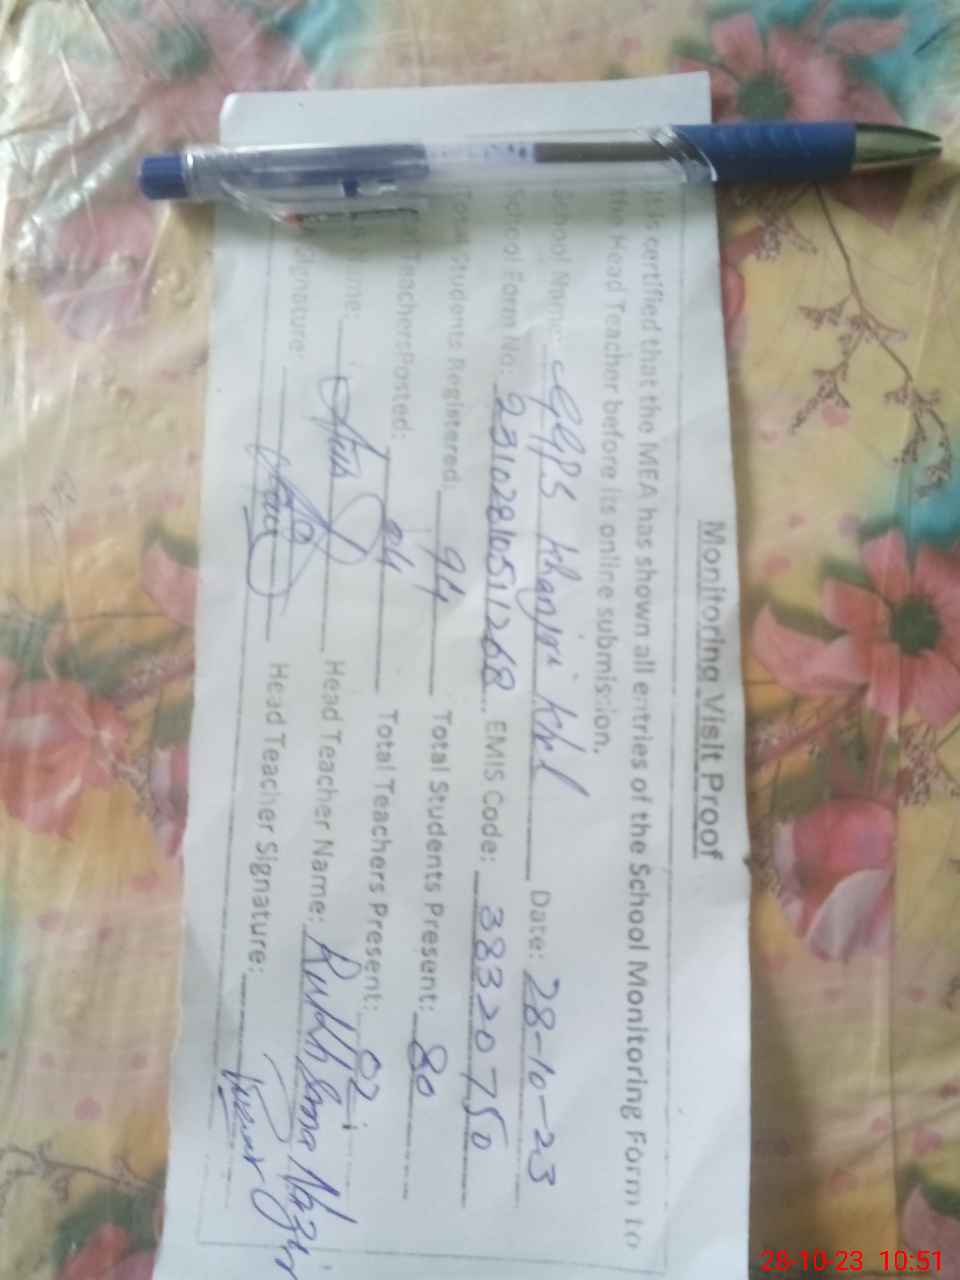 Monitoring Visit Proof
It is certified that the MEA has shown all entries of the School Monitoring Form to
the Head Teacher before its online submission.
School Name: GGPS Khanjri Khel Date: 28-10-23
School Form No: 2310281051268 EMIS Code: 38320750
Total Students Registered: 94 Total Students Present: 80
Total TeachersPosted: 04 Total Teachers Present: 02
Name: Head Teacher Name: Nazir
Signature: Head Teacher Signature:
28-10-23 10:51